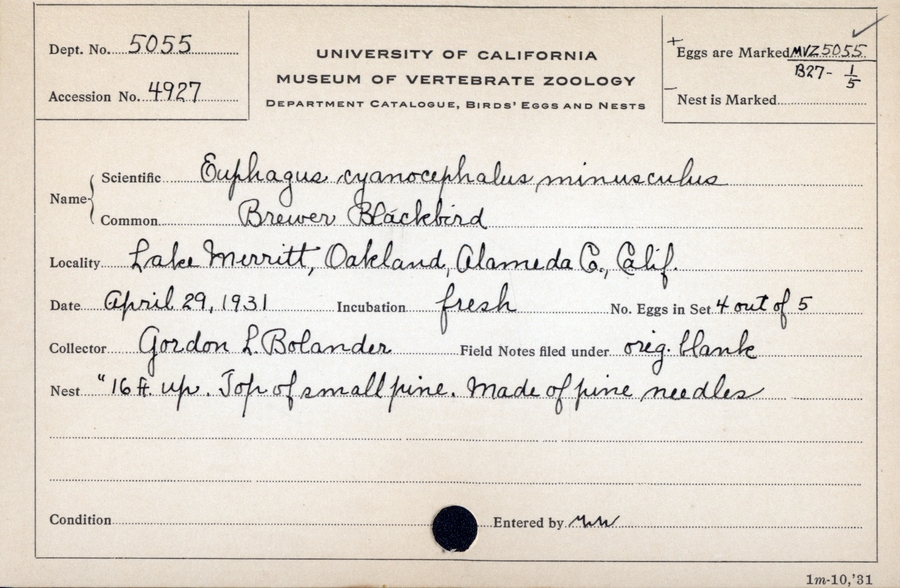 Dept. No. 5055
Accession No. 4927
UNIVERSITY OF CALIFORNIA
MUSEUM OF VERTEBRATE ZOOLOGY
DEPARTMENT CATALOGUE, BIRDS' EGGS AND NESTS
+ Eggs are Marked MVZ 5055
B27- 1/5
– Nest is Marked
Name { Scientific Euphagus cyanocephalus minusculus
Common Brewer Blackbird
Locality Lake Merritt, Oakland, Alameda Co., Calif.
Date April 29, 1931 Incubation fresh No. Eggs in Set 4 out of 5
Collector Gordon L. Bolander Field Notes filed under orig. blank
Nest "16 ft. up. Top of small pine. Made of pine needles
Condition Entered by
1m-10,'31